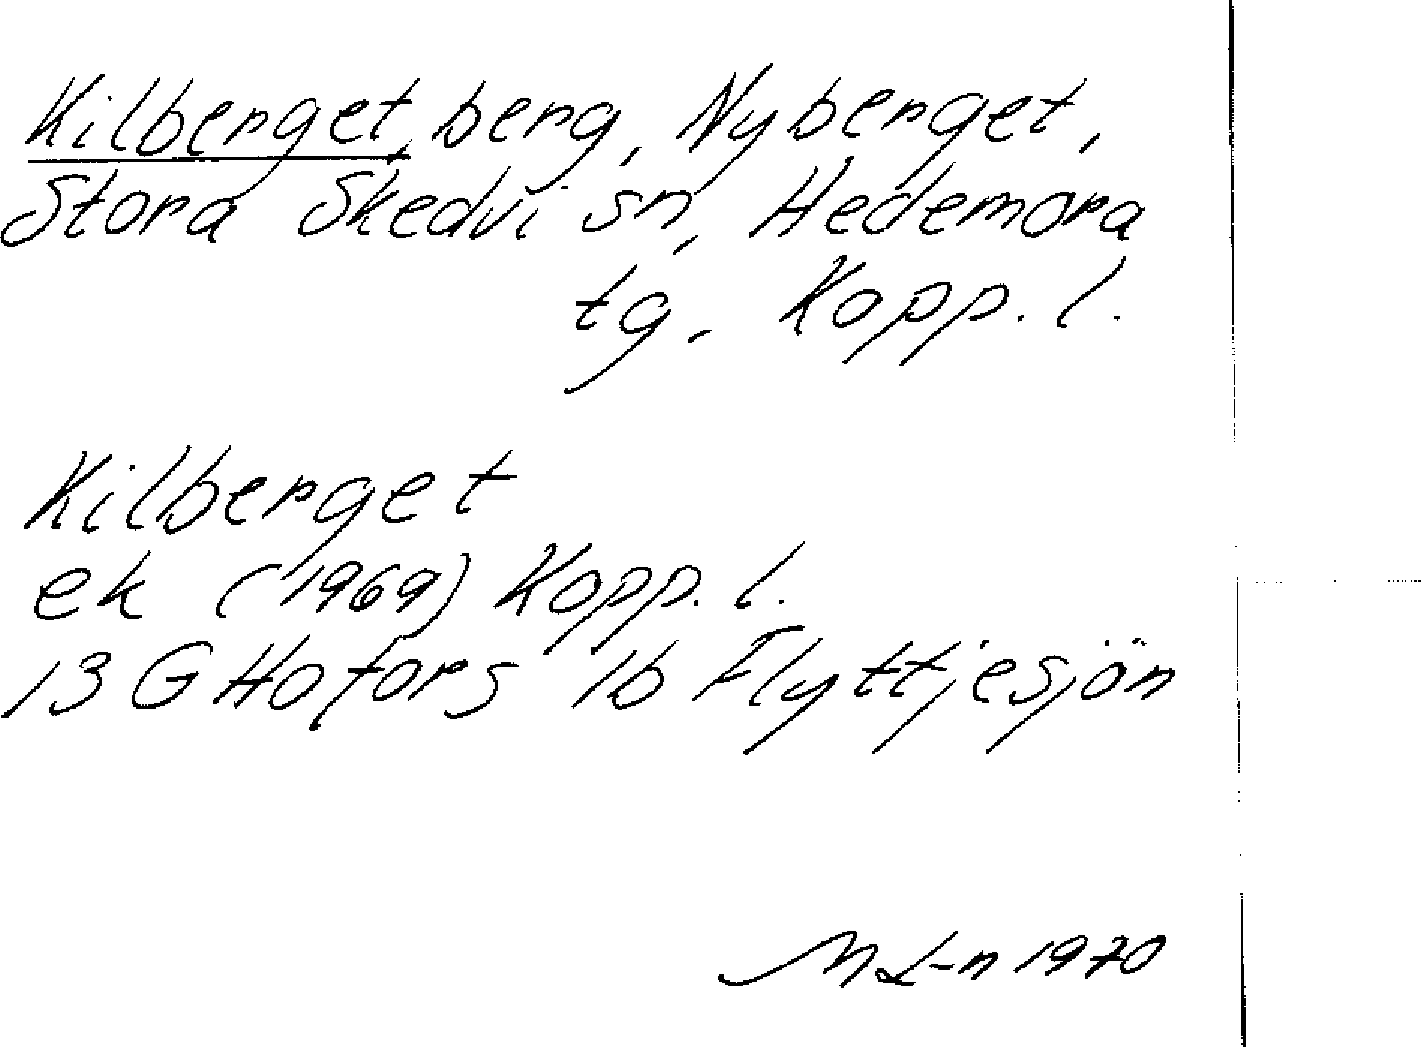 Kilberget, berg, Nyberget,
Stora Skedvi sn, Hedemora
tg, Kopp. l.
Kilberget
ek (1969) Kopp. l.
13 G Hofors 1b Flyttjesjön
M L-n 1970